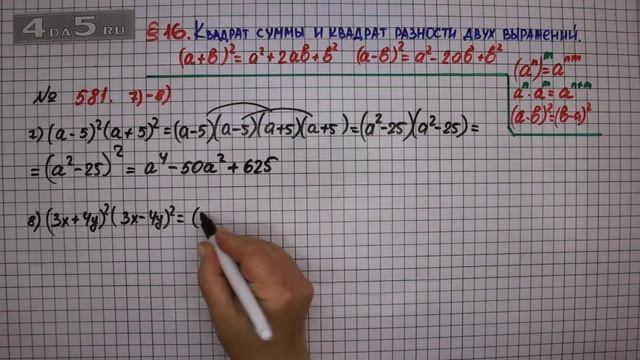 4DA5.RU
§16. Квадрат суммы и квадрат разности двух выражений.
(a+b)² = a² + 2ab + b² (a-b)² = a² - 2ab + b²
(aⁿ)ᵐ = aⁿᵐ
aⁿ · aᵐ = aⁿ⁺ᵐ
(a-b)² = (b-a)²
№ 581. 7)-8)
7) (a-5)²(a+5)² = (a-5)(a-5)(a+5)(a+5) = (a²-25)(a²-25) =
= (a²-25)² = a⁴ - 50a² + 625
8) (3x+4y)²(3x-4y)² = (